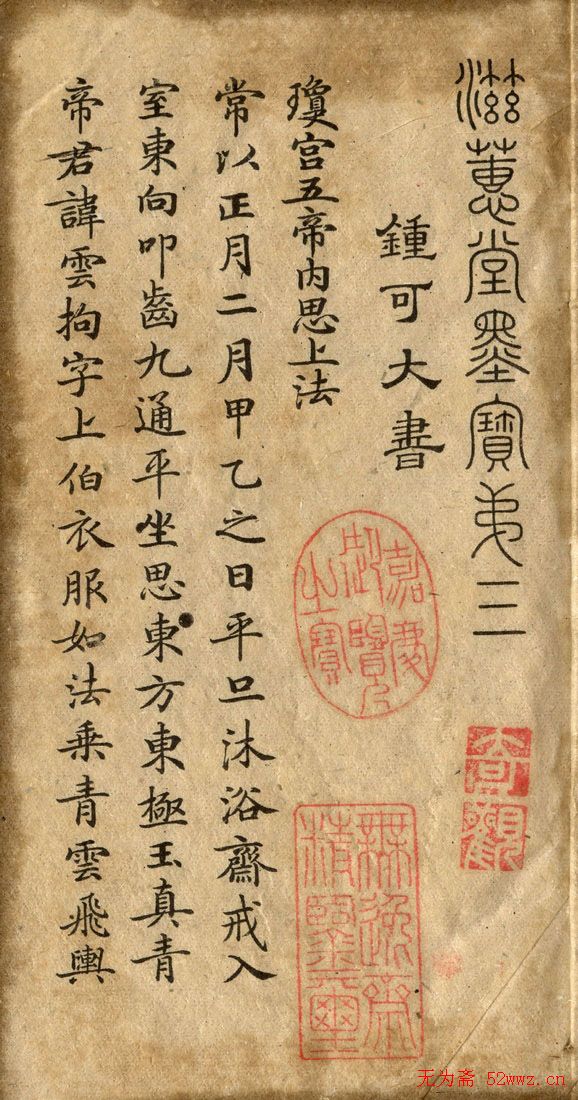 滋蕙堂墨寶弟三
鍾可大書
瓊宮五帝內思上法
常以正月二月甲乙之日平旦沐浴齋戒入
室東向叩齒九通平坐思東方東極玉真青
帝君諱雲拘字上伯衣服如法乘青雲飛輿
嘉慶御覽之寶
無逸齋精鑒璽
无为斋 52wwz.cn